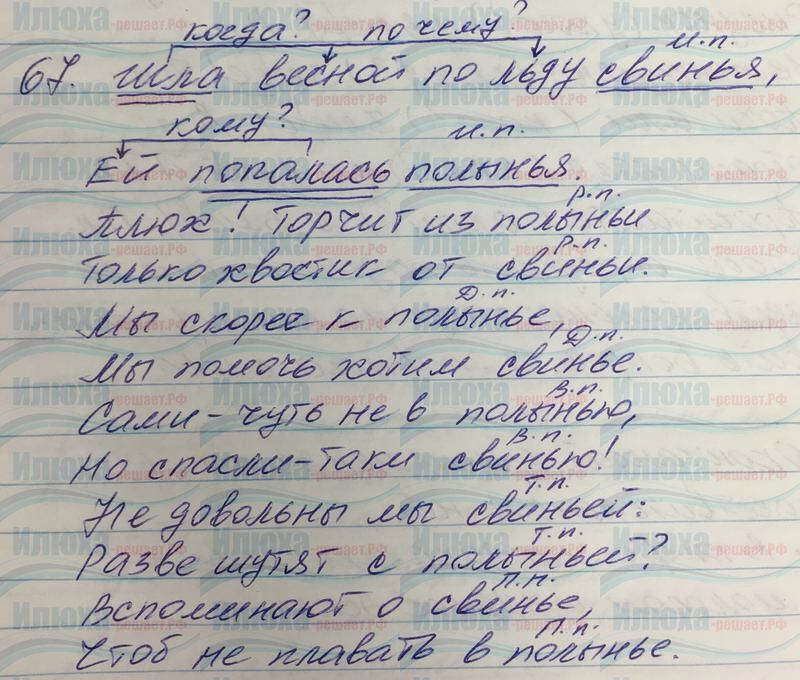 когда? по чему?
и.п.
67. Шла весной по льду свинья,
кому? и.п.
Ей попалась полынья.
р.п.
Плюх! Торчит из полыньи
р.п.
Только хвостик от свиньи.
Д.п.
Мы скорее к полынье,
Д.п.
Мы помочь хотим свинье.
в.п.
Сами-чуть не в полынью,
в.п.
Но спасли-таки свинью!
Т.п.
Не довольны мы свиньей:
Т.п.
Разве шутят с полыньей?
П.п.
Вспоминают о свинье,
П.п.
Чтоб не плавать в полынье.
Илюха
-решает.РФ